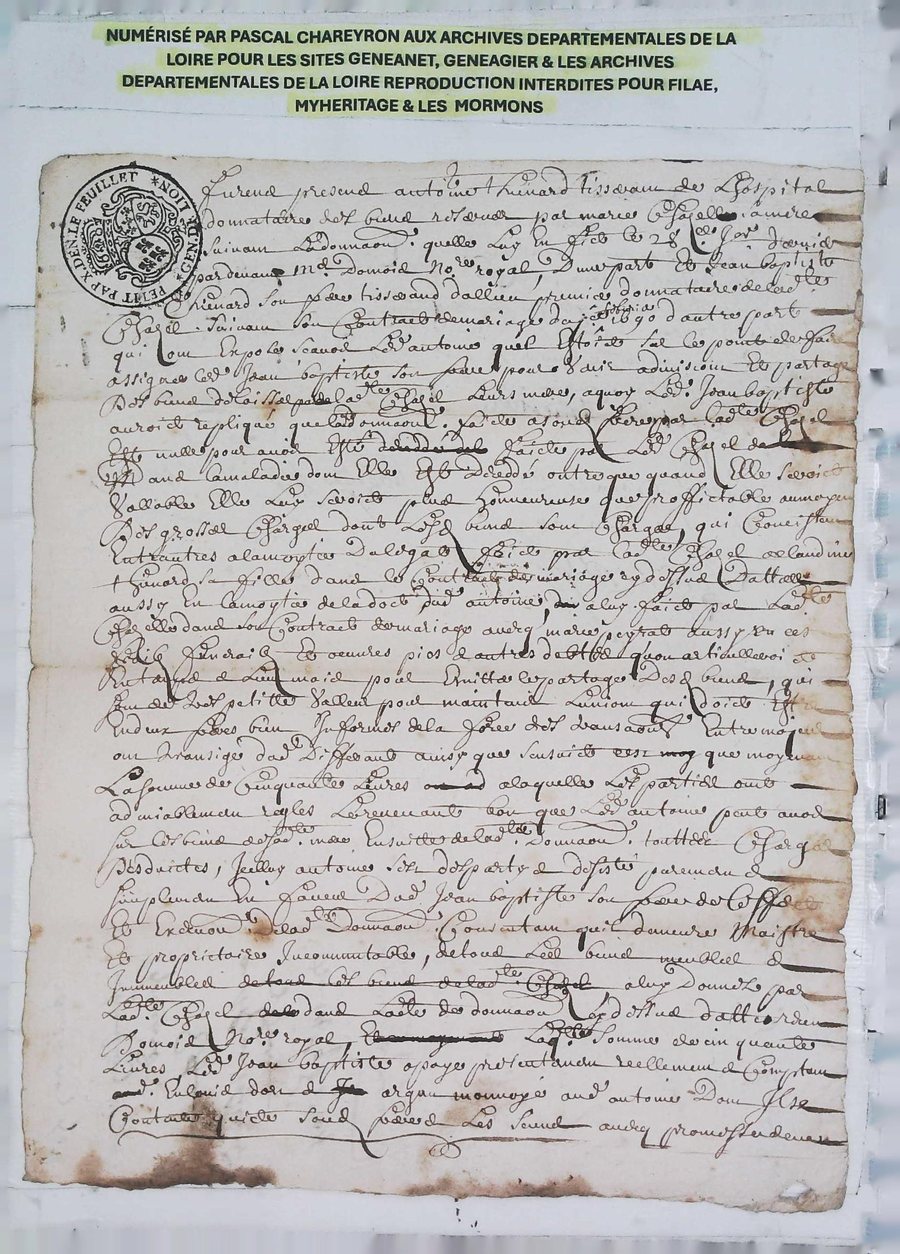 NUMÉRISÉ PAR PASCAL CHAREYRON AUX ARCHIVES DEPARTEMENTALES DE LA
LOIRE POUR LES SITES GENEANET, GENEAGIER & LES ARCHIVES
DEPARTEMENTALES DE LA LOIRE REPRODUCTION INTERDITES POUR FILAE,
MYHERITAGE & LES MORMONS
PETIT PAP X DEN. LE FEUILLET * GEN DE
furend presend antoine thenard tisserant de Lhospital
donnataire des biens par marie Chazelle sa mere
suivant La donnaon. quelle Luy en fict le 28
pardevant Me. Domoid No.re royal, Dune part Et Jean baptiste
thenard son frere tisserand dallieu premier donnataire de lad.te
Chazel suivant son Contract de mariage du 1690 dautre part
qui ont Expose scavoir Led. antoine quil Estoit sur le point de faire
assigner led. Jean baptiste son frere pour admission Et partage
Des biens delaisses par lad.te Chazel Leurs mere, a quoy Led. Jean baptiste
auroit replique que la donnaon. faicte a son frere par lad.te Chazel
Est nulle pour avoir Esté faicte par Lad. Chazel
la maladie dont Elle Est decedé outre que quand Elle seroit
Vallable Elle Luy seroit plus honnereuse que proffictable au moyen
Des grosses Charges dont Lesd. biens sont Charges, qui Consistent
Entrautres a la moytie du legat faict par lad.te Chazel a
thenard sa fille dans le Contract de mariage cy dessus Datté
aussy En la moytie de la dot dud. antoine, a luy faict par Lad.te
Chazelle dans son Contract de mariage avecq marie peyrat aussy En ces
fraits funerails Et oeuvres pies et autres debtes quon articulleroi
mais pour Emitter le partage Desd. biens, qui
sont de tres petitte Valleur pour maintenir Lunion qui doict Estre
Entre deux freres bien Informes de la force des transaons. Entremoyens
ont transigé dud. Different ainsy que sensuict que moyenant
La somme de Cinquante Livres a laquelle Les parties ont
admiablement regles Le revenant bon que Led. antoine peut avoir
sur les biens de sad. mere Ensuitte de lad.te Donnaon. touttes Charges
Desduictes, Icelluy antoine sest desparty et desisté purement et
simplement En faveur Dud. Jean baptiste son frere de Leffect
Et Execuon. de lad.te Donnaon. Consentant quil demeure Maistre
Et proprietaire Incommutable, de tous Lesd. biens meubles et
Immeubles de tous les biens de lad.te Chazel a luy Donnez par
Lad.te Chazel dans Lacte de donnaon cy dessus datté
Domoid No.re royal, Laq.lle somme de cinquante
Livres, Led. Jean baptiste a paye presentement reellement et Comptant
En louis dor et argent monnoyé aud. antoine Dont Il se
Contente quicte sond. frere avecq promesse